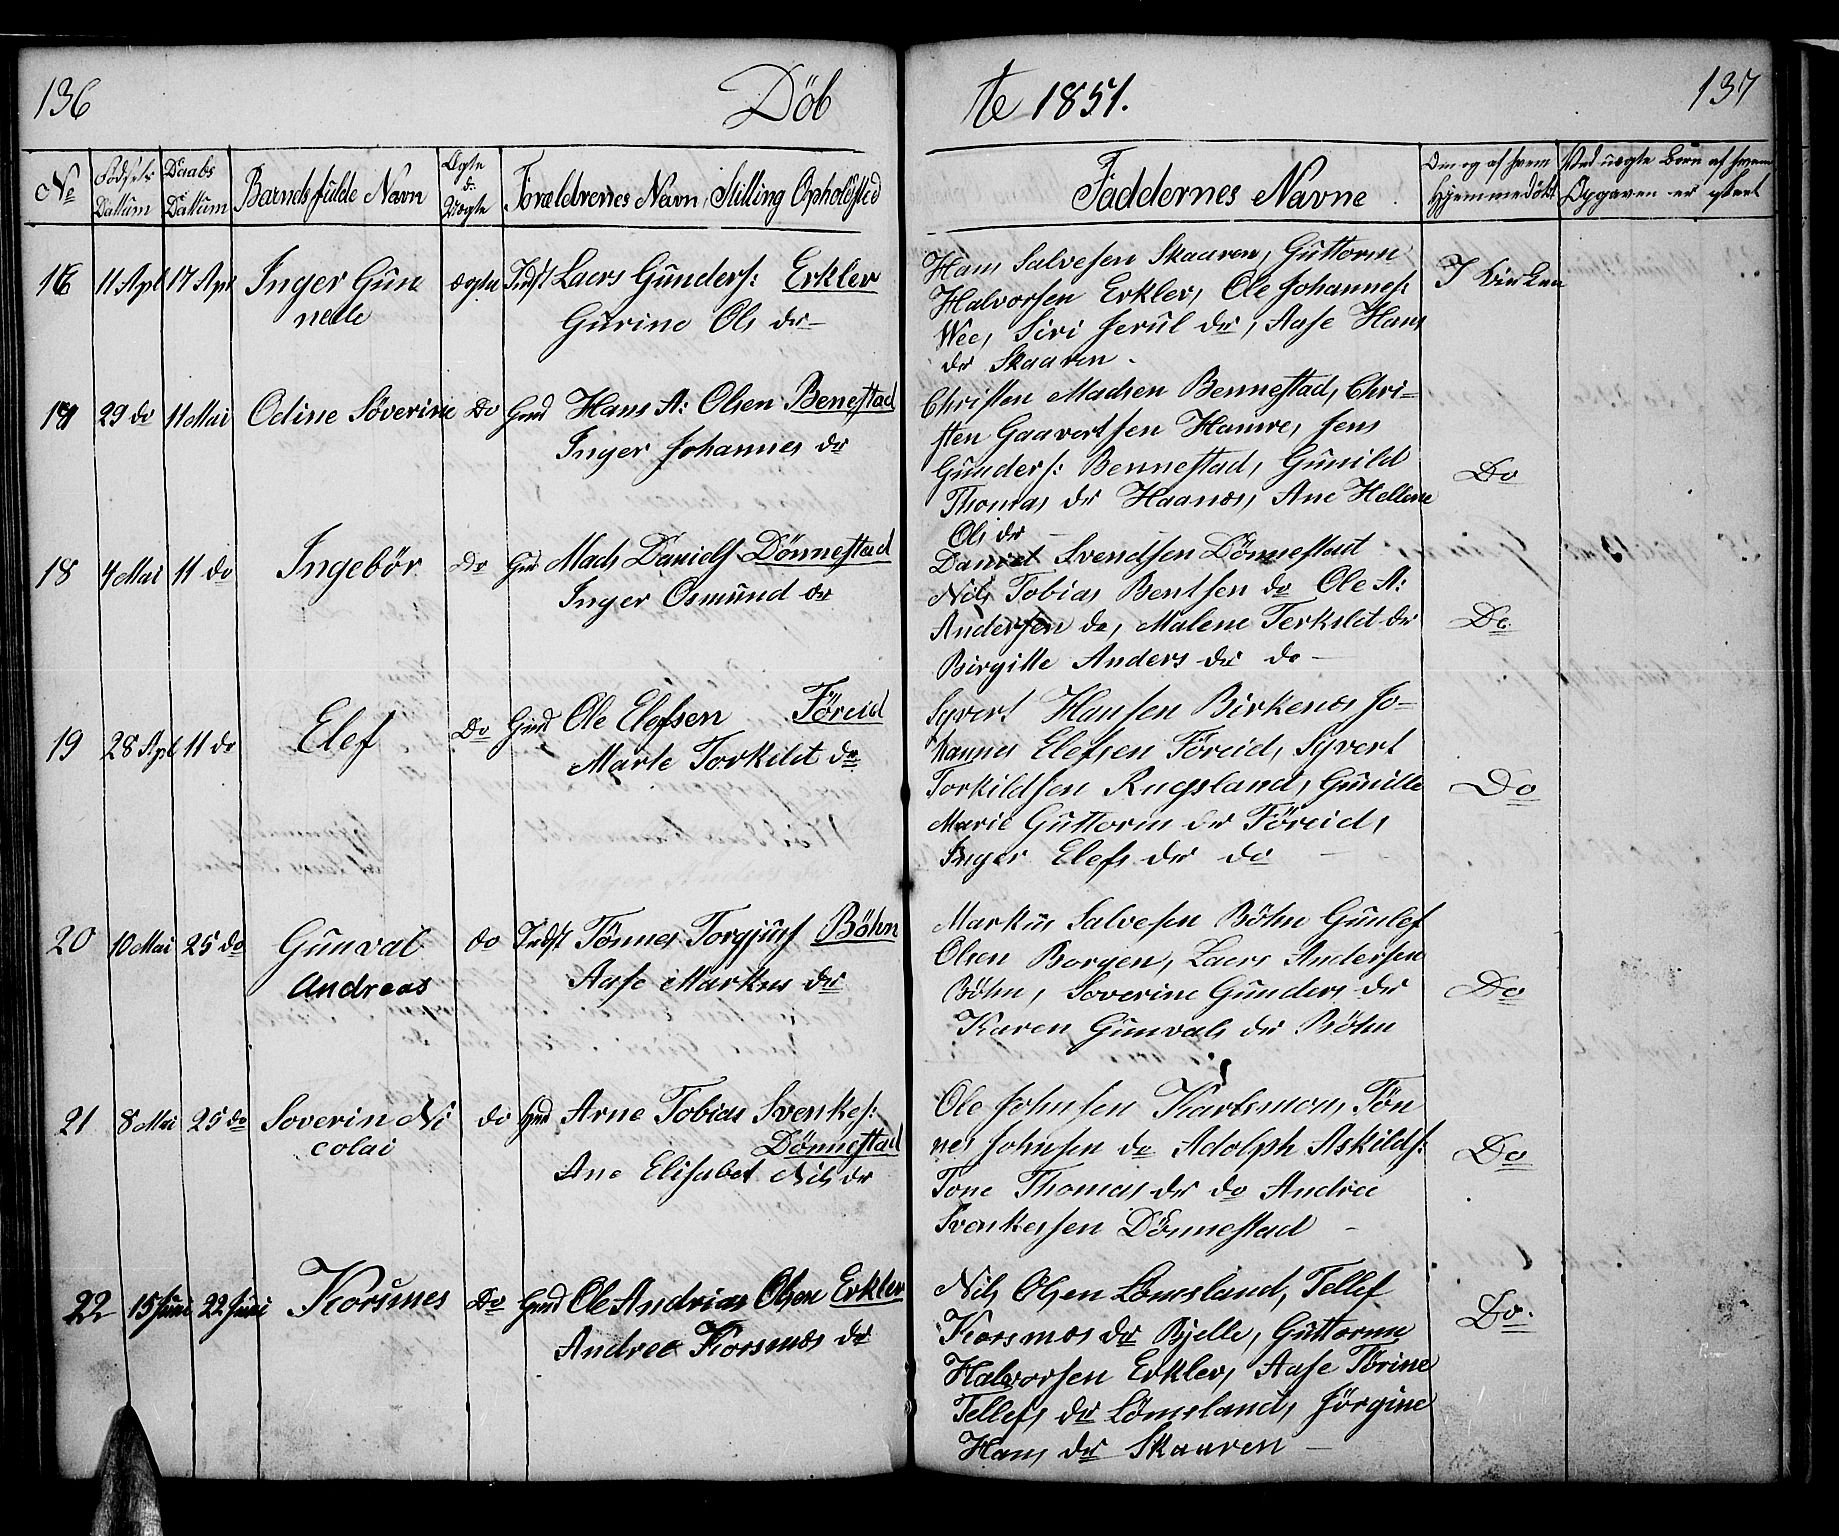 136
Döbte 1851.
137
No
Födsels Dattum
Daabs Dattum
Barnets fulde Navn
Ægte & Uægte
Forældrenes Navn, Stilling Opholdsted
Faddernes Navne
Om og af hvem Hjemmedöbt
Ved uægte Börn af hvem Opgaven er skeet
16 11 Apl 17 Apr Inger Gun ægte Indst Laers Gunders: Erkler
nelle Gurine Ols dr
Hans Salvesen Skaaren, Guttorm
Halvorsen Erkler, Ole Johannes:
Wee, Siri Jerul dr, Aase Hans
dr Skaaren
I Kirken
17 29 do 11 Mai Odine Söverine Do Gmd Hans A: Olsen Benestad
Inger Johannes dr
Christen Madsen Bennestad, Chri-
sten Gaavertsen Hamre, Jens
Gunders: Bennestad, Gunild
Thomas dr Haanes, Ane Hellene
Ols dr
Do
18 4 Mai 11 do Ingebör Do Gmd Mads Daniels Dönnestad
Inger Osmund dr
Daniel Svendsen Dönnestad
Nils Tobias Bentsen do Ole A:
Andersen do, Malene Terkelst dr
Birgitte Anders dr do
Do
19 28 Apl 11 do Elef Do Gmd Ole Elefsen Föreid
Marte Torkilst dr
Syvert Hansen Birkenes Jo-
hannes Elefsen Föreid, Syvert
Torkildsen Rugsland, Gunille
Marie Guttorm dr Föreid,
Inger Elefs dr do
Do
20 10 Mai 25 do Gunval do Indst Tönnes Torgjuss Böhn
Andreas Aase Markus dr
Markus Salvesen Böhn Gunlef
Olsen Borgen, Laers Andersen
Böhn, Soverine Gunders dr
Karen Gunvals dr Böhn
Do
21 8 Mai 25 do Soverin Ni do Gmd Arne Tobias Svenkes:
colai Dönnestad
Ane Elisabet Nils dr
Ole Johnsen Kartsmon, Tön
nes Johnsen do Adolph Askilds:
Tone Thomas dr do Andree
Svenkesen Dönnestad
Do
22 15 Juni 22 Juni Korsmes Do Gmd Ole Andrias Olsen Erkler
Andree Korsmos dr
Nils Olsen Lömsland, Tellef
Korsmos dr Bjelle, Guttorm
Halvorsen Erkler, Aase Törine
Tellefs dr Lömsland, Jörgine
Hans dr Skaaren
Do.